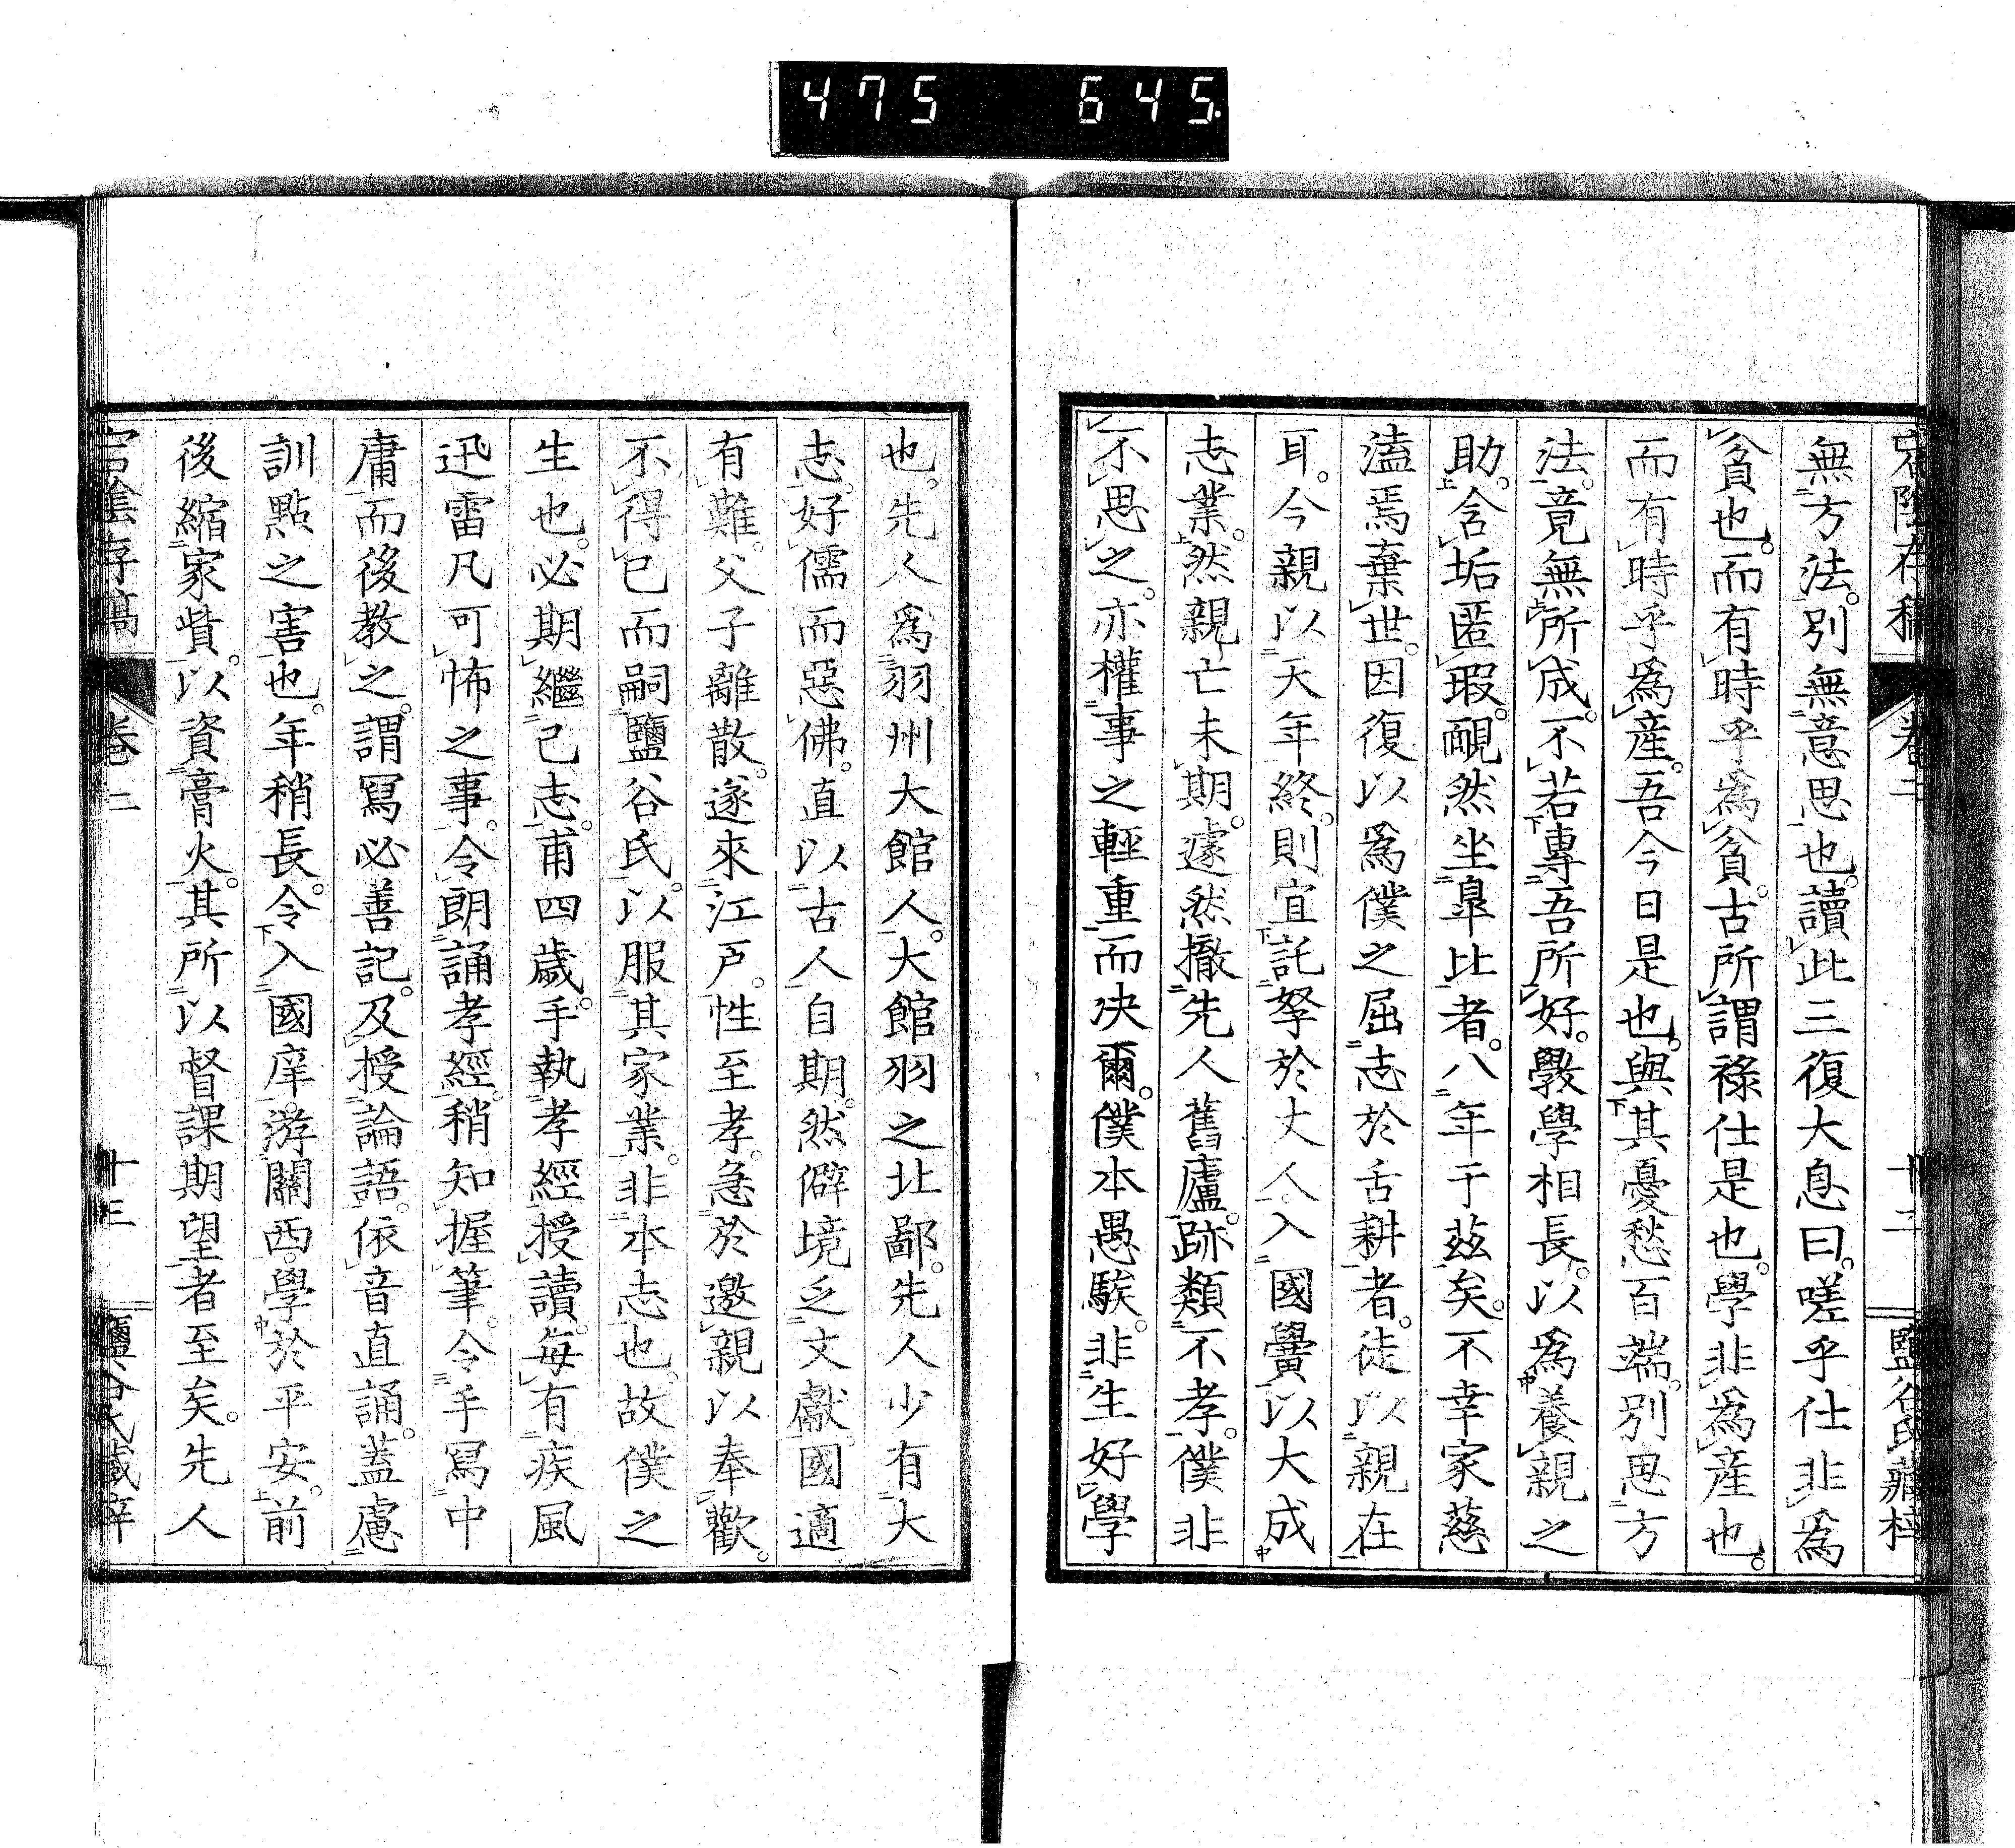 475 645.
無方法。別無意思也。讀此三復大息曰。嗟乎仕非為
貧也。而有時乎為貧。古所謂祿仕是也。學非為產也。
而有時乎為產。吾今日是也。與其憂愁百端。別思方
法。竟無所成。不若專吾所好。斅學相長。以為養親之
助。含垢匿瑕。靦然坐皐比者。八年于茲矣。不幸家慈
溘焉棄世。因復以為僕之屈志於舌耕者。徒以親在
耳。今親以天年終。則宜託孥於丈人。入國黌以大成
志業。然親亡未期。遽然撤先人舊廬。跡類不孝。僕非
不思之。亦權事之輕重而决爾。僕本愚騃。非生好學
也。先人為羽州大館人。大館羽之北鄙。先人少有大
志。好儒而惡佛。直以古人自期。然僻境乏文獻。國適
有難。父子離散。遂來江戶。性至孝。急於邀親以奉歡。
不得已而嗣鹽谷氏。以服其家業。非本志也。故僕之
生也。必期繼己志。甫四歲。手執孝經授讀。每有疾風
迅雷凡可怖之事。令朗誦孝經。稍知握筆。令手寫中
庸而後教之。謂寫必善記。及授論語。依音直誦。蓋慮
訓點之害也。年稍長。令入國庠。游關西。學於平安。前
後縮家貲。以資膏火。其所以督課期望者至矣。先人
宕陰存稿 卷二 十三 鹽谷氏藏梓